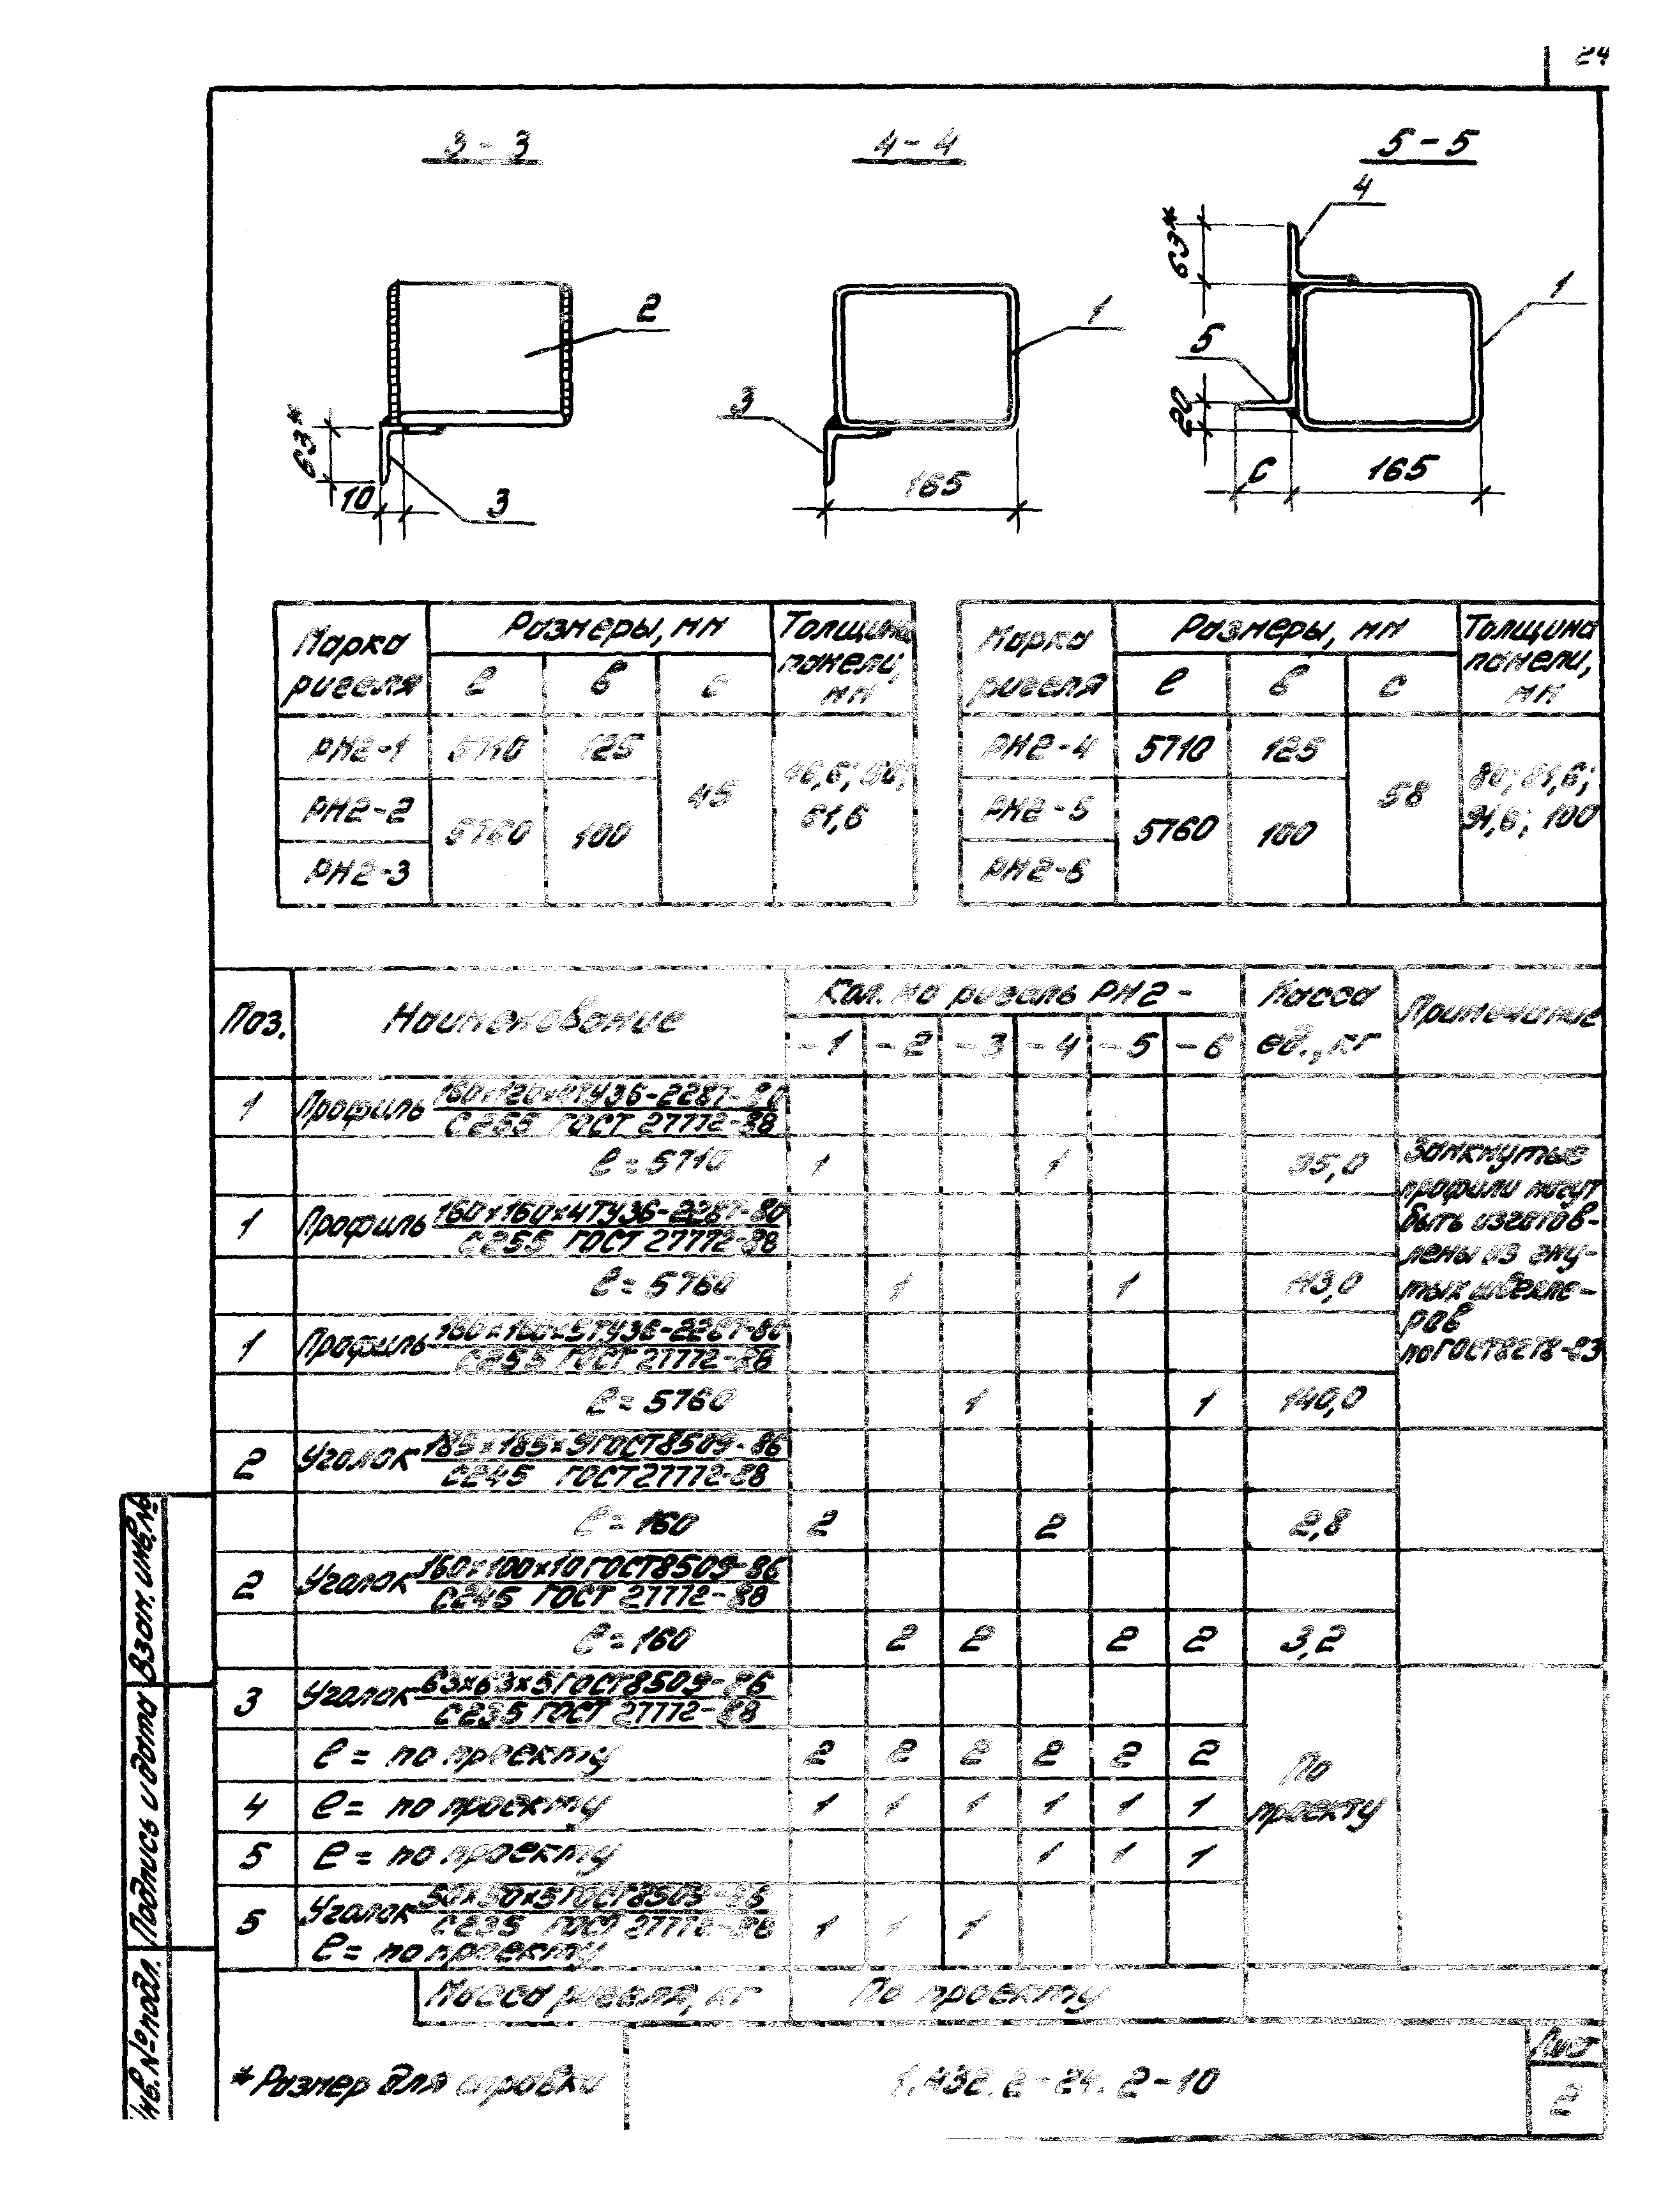 24
3-3
4-4
5-5
2
63*
10
3
1
3
165
4
63*
1
5
20
С
165
Марка ригеля
Размеры, мм
Толщина панели, мм
ℓ
в
с
РН2-1
5710
125
РН2-2
5760
100
РН2-3
45
46,6; 50;
61,6
Марка ригеля
Размеры, мм
Толщина панели, мм
ℓ
в
с
РН2-4
5710
125
РН2-5
5760
100
РН2-6
58
80; 81,6;
91,6; 100
Поз.
Наименование
Кол. на ригель РН2-
Масса ед., кг
Примечание
-1 -2 -3 -4 -5 -6
1 Профиль 160х120х4ТУ36-2287-80
С255 ГОСТ 27772-88
ℓ = 5710 1 1 95,0
1 Профиль 160х160х4ТУ36-2287-80
С255 ГОСТ 27772-88
ℓ = 5760 1 1 113,0
1 Профиль 160х160х5ТУ36-2287-80
С255 ГОСТ 27772-88
ℓ = 5760 1 1 140,0
Замкнутые
профили могут
быть изготов-
лены из гну-
тых швелле-
ров
по ГОСТ 8278-83
2 Уголок ГОСТ8509-86
С245 ГОСТ 27772-88
ℓ = 160 2 2 2,8
2 Уголок 160х100х10 ГОСТ8509-86
С245 ГОСТ 27772-88
ℓ = 160 2 2 2 2 3,2
3 Уголок 63х63х5 ГОСТ8509-86
С235 ГОСТ 27772-88
ℓ = по проекту 2 2 2 2 2 2
4 ℓ = по проекту 1 1 1 1 1 1
5 ℓ = по проекту 1 1 1
5 Уголок 50х50х5 ГОСТ8509-86
С235 ГОСТ 27772-88
ℓ = по проекту 1 1 1
По
проекту
Масса ригеля, кг
По проекту
*Размер для справки
1.432.2-24.2-10
Лист
2
Взам. инв.№
Подпись и дата
Инв.№ подл.